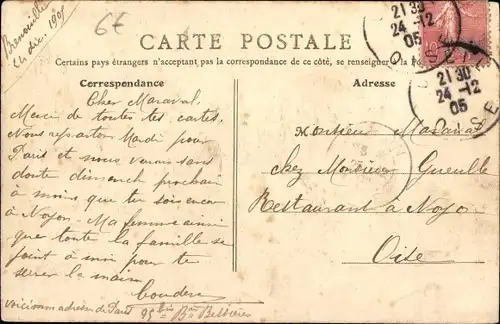 24 Déc. 1905
6€
CARTE POSTALE
Certains pays étrangers n'acceptant pas la correspondance de ce côté, se renseigner à la Po
Correspondance
Adresse
21 30
24 -12
05
21 30
24 -12
05
OISE
Cher Maraval,
Merci de toutes tes cartes.
Nous repartons Mardi pour
Paris et nous verrons sans
doute dimanch prochain
à moins que tu sois encore
à Noyon - Ma femme ainsi
que toute la famille se
joint à moi pour te
serrer la main
Couderc
voici mon adresse de Paris 95 bis Bd Bessières
Monsieur Maraval
chez Monsieur Gueulle
Restaurant à Noyon
Oise